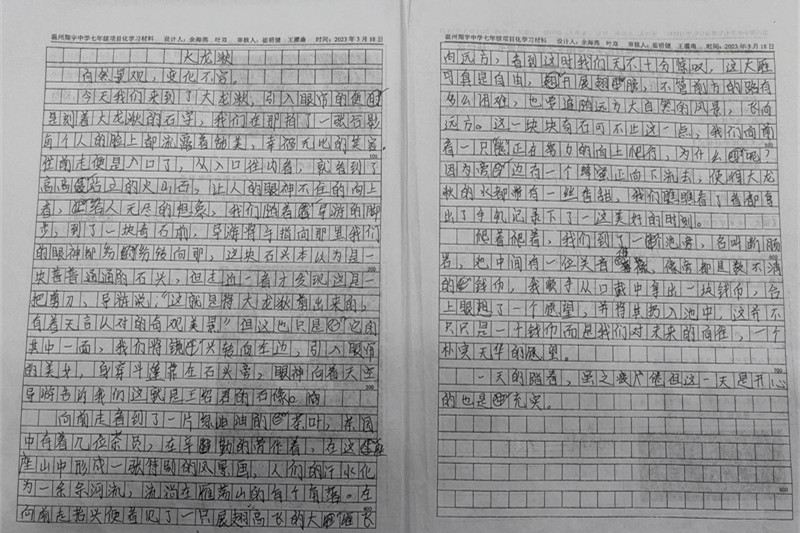 温州翔宇中学七年级项目化学习材料 设计人：余海燕 叶蓉 审核人：崔明健 王露南 时间：2023年3月18日
大龙湫
自然景观，变化不穷。
今天我们来到了大龙湫，引入眼帘的便
是刻着大龙湫的石字，我们在那拍了一张合影
每个人的脸上都流露着甜美，幸福无比的笑容
往南走便是入口了，从入口往内看，就看到了
高高耸立的火山石，让人的眼神不住的向上
看，给人无尽的想象，我们随着导游的脚
步，到了一块奇石前，导游将手指向那里我们
的眼神都纷纷转向那，这块石头本以为是一
块普普通通的石头，但走近一看才发现这是一
把剪刀，导游说："这就是将大龙湫剪出来的，
有着天言人对的奇观美景"但这也只是它的
其中一面，我们将镜头转向左边，引入眼帘
的美女，身穿斗篷靠在石头旁，眼神向着天空
导游告诉我们这就是王昭君的石像。
向南走看到了一片绿油油的茶叶，茶园
中有着几位茶员，在辛勤的劳作着，在这
座山中形成一张特别的风景画，人们的汗水化
为一条条河流，流淌在雁荡山的每个角落。在
向南走抬头便看见了一只展翅高飞的大雁飞
温州翔宇中学七年级项目化学习材料 设计人：余海燕 叶蓉 审核人：崔明健 王露南 时间：2023年3月18日
向远方，看到这时我们无不十分惊叹，这大雁
可真是自由，展开翅膀，不管前方的路有
多么困难，也要追随远方大自然的风景，飞向
远方。这一块块奇石可不止这一点，我们向南
看一只正在努力的向上爬行，为什么呢？
因为旁边有一个蜂蜜正向下流去，使得大龙
湫的水都带有一些香甜，我们看了看都拿
出了手机记录下了一这美好的时刻。
爬着爬着，我们到了一池旁，名叫断肠
崖，池中间有一位关着，像前都是数不清
的钱币，我顺手从口袋中拿出一块钱币，合
上眼想了一个愿望，并将其扔入池中，这并不
只只是一个钱币而是我们对未来的向往，一个
朴实无华的愿望。
一天的踏着，虽之疲广倦但这一天是开心
的也是充实。